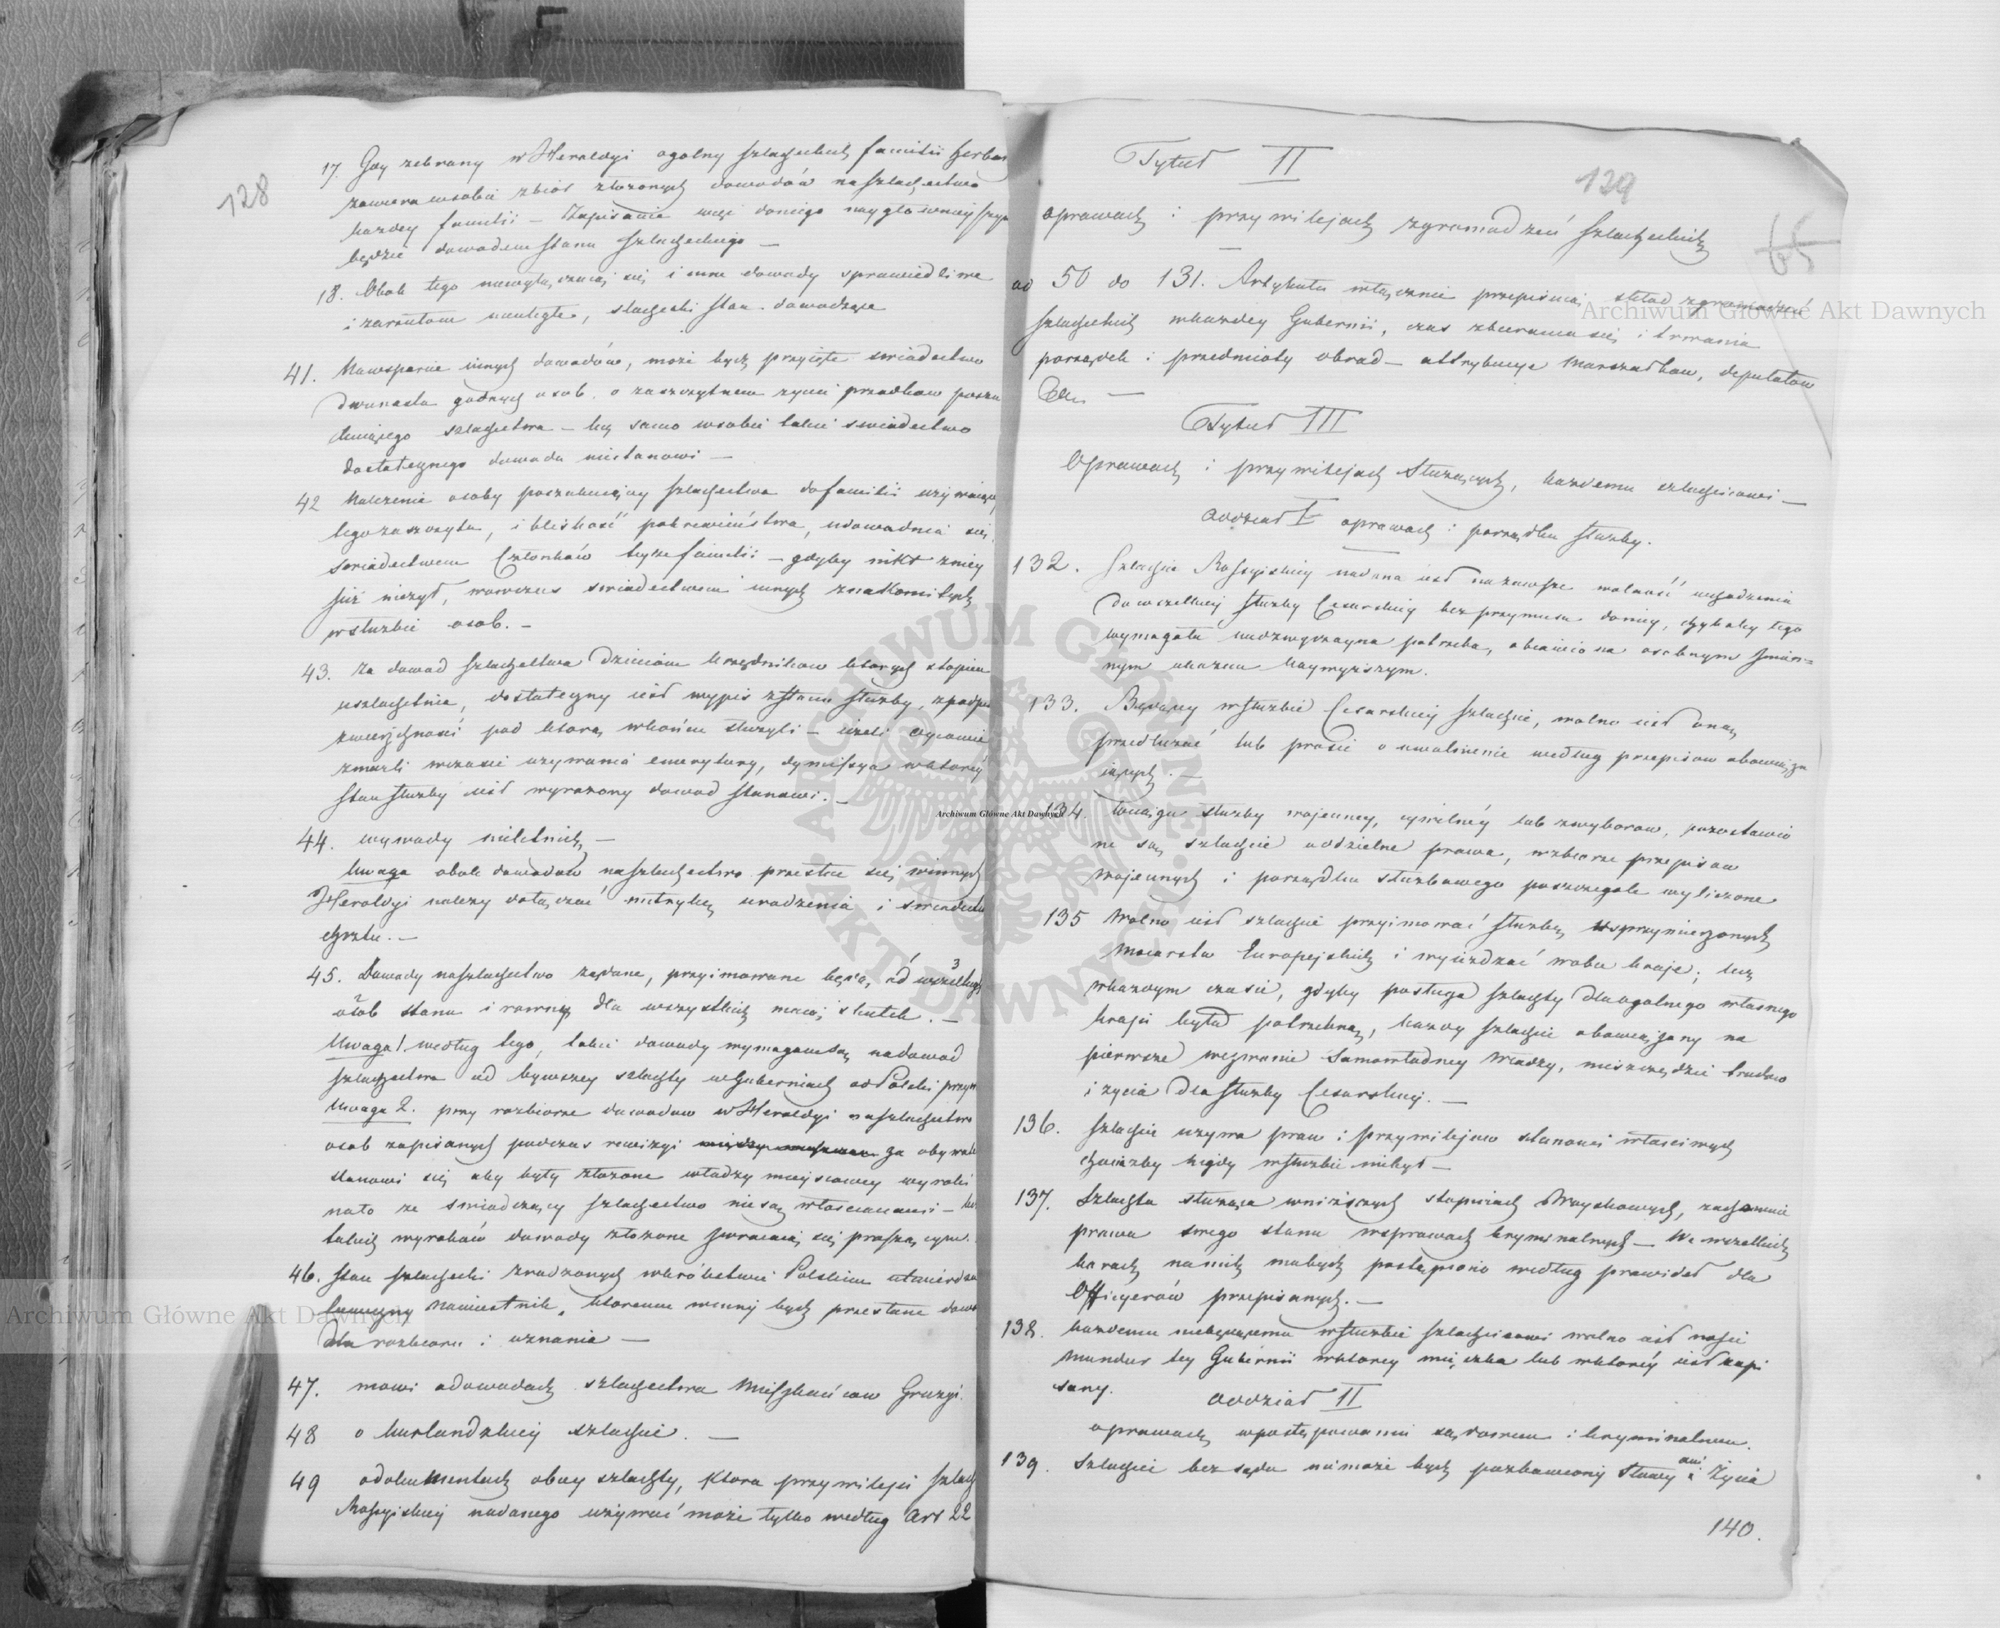 128
17. Gdy zebrany w Heroldyi ogolny szlacheckich familii herbarz
zawiera w sobie zbiór złozonych dowodów na szlachectwo
kazdey familii – Zapisanie więc doniego naygłowniejszym
będzie dowodem stanu szlacheckiego –
18. Obok tego niewyłączaią się i inne dowody sprawiedliwe
i zarzutom nieuległe, szlachecki stan dowodzące
41. Na wsparcie innych dowodów, może bydź przyięte swiadectwo
dwunastu godnych osob o zaszczytnem zyciu przodkow poszu
kuiącego szlachectwa – lecz samo w sobie takie swiadectwo
dostatecznego dowodu niestanowi –
42 Nalezenie osoby poszukuiącey szlachectwa do familii uzywaiącey
tego zaszczytu, i bliskość pokrewieństwa, udowadnia się
swiadectwem Członków teyże familii – gdyby nikt z niey
już niezył, wowczas swiadectwem innych znakomitych
w służbie osob. –
43. Za dowod szlachectwa dzieciom Urzędnikow ktorych stopien
uszlachetnia, dostateczny iest wypis z stanu służby, z podpisem
zwierzchności pod ktorą w końcu służyli – iezeli oycowie
zmarli w czasie uzywania emerytury, dymissya w ktorey
stan służby iest wyrazony dowod stanowi. –
44. wywody nieletnich –
Uwaga obok dowodów na szlachectwo przesłac się winnych
Heroldyi nalezy dołączać metrykę urodzenia i swiadectwo
chrztu. –
45. Dowody na szlachectwo ządane, przyimowane będą od wszelkiego
osób stanu i rowny dla wszystkich maią skutek. –
Uwaga 1. według tego, takie dowody wymagane są na dowod
szlachectwa od bywszey szlachty w Guberniach od Polski przyw
Uwaga 2. przy rozbiorze dowodow w Heroldyi na szlachectwo
osob zapisanych podczas rewizyi za obywateli
stanowi się aby były złozone władzy mieyscowey wyroki
na to ze swiadczący szlachectwo nie są włoscianami – bez
takich wyroków dowody złozone zwracaią się proszącym.
46. Stan szlachecki zrodzonych w królestwie Polskim utwierdza
Namiestnik, ktoremu winny bydz przesłane dowody
dla rozbioru i uznania –
47. mowi o dowodach szlachectwa Mieszkańcow Gruzyi.
48 o kurlandzkiey szlachcie. –
49 o dokumentach obcey szlachty, ktora przywileju szlach
Rossyiskiey nadanego uzywać może tylko według Art 22
129
65
Tytuł II
o prawach i przywilejach zgromadzeń szlacheckich
–
od 50 do 131. Artykułu włącznie przepisuią skład zgromadzeń
szlacheckich w kazdey Gubernii, czas zbierania się i trwania
porządek i przedmioty obrad – attrybucye Marszałkow, deputatow
Etc. –
Tytuł III
O prawach i przywilejach służących, kazdemu szlachcicowi –
Oddział I o prawach i porządku służby.
132. Szlachcie Rossyiskiey nadana iest nazawsze wolność wchodzenia
do wszelkiey służby Cesarskiey bez przymusu doniey, chybaby tego
wymagała nadzwyczayna potrzeba, obiawiona osobnym Jmien=
nym ukazem Naywyzszym.
133. Będący w służbie Cesarskiey szlachcic, wolno iest oną
przedłuzać lub prosić o uwolnienie według przepisow obowiązu
iących. –
134. Wciągu służby wojenney, cywilnéy lub z wyborow, pozostawio
ne są szlachcie oddzielne prawa, w zbiorze przepisow
wojennych i porządku służbowego poszczegole wyliczone
135 Wolno iest szlachcie przyimować służbę w sprzymierzonych
mocarstw Europejskich i wyieżdzać w obce kraje; lecz
w kazdym czasie, gdyby posługa szlachty dla ogolnego własnego
kraju była potrzebną, kazdy szlachcic obowiązany na
pierwsze wezwanie Samowładney Władzy, nieszczędzić trudow
i zycia dla służby Cesarskiey. –
136. Szlachcic uzywa praw i przywilejow stanowi właściwych
chociazby nigdy w służbie niebył –
137. Szlachta służąca w nizszych stopniach Woyskowych, zachowuie
prawa swego stanu w sprawach kryminalnych – We wszelkich
karach na nich mabydz postąpiono według prawideł dla
Officyerów przepisanych. –
138. kazdemu niebędącemu w służbie szlachcicowi wolno iest nosić
mundur tey Gubernii w ktorey mieszka lub w ktoréy iest zapi
sany.
Oddział II
o prawach w postępowaniu sądowem i kryminalnem.
139. Szlachcic bez sądu niemoże bydz pozbawiony Sławy ani Życia
140.
Archiwum Główne Akt Dawnych
Archiwum Główne Akt Dawnych
Archiwum Główne Akt Dawnych
ARCHIWUM GŁÓWNE AKT DAWNYCH